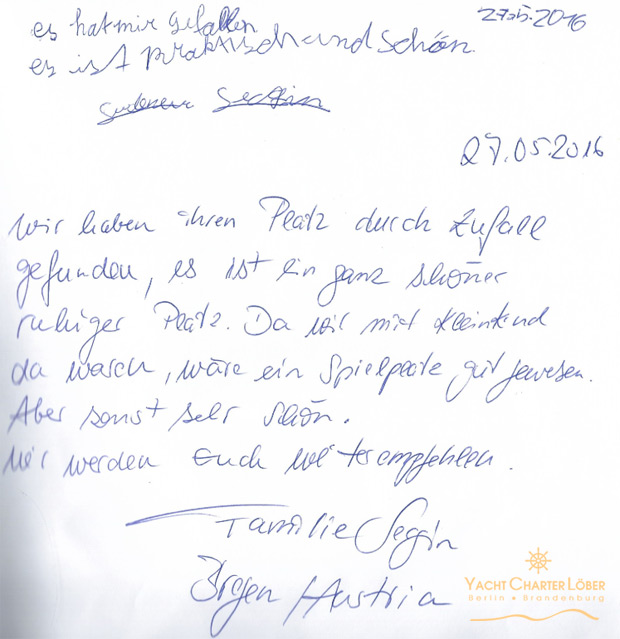 27.05.2016
es hat mir gefallen
es ist praktisch und schön
27.05.2016
Wir haben ihren Platz durch Zufall
gefunden, es ist ein ganz schöner
ruhiger Platz. Da wir mit Kleinkind
da waren, wäre ein Spielplatz gut gewesen.
Aber sonst sehr schön.
Wir werden Euch weiterempfehlen.
Familie
Austria
YACHT CHARTER LÖBER
Berlin • Brandenburg